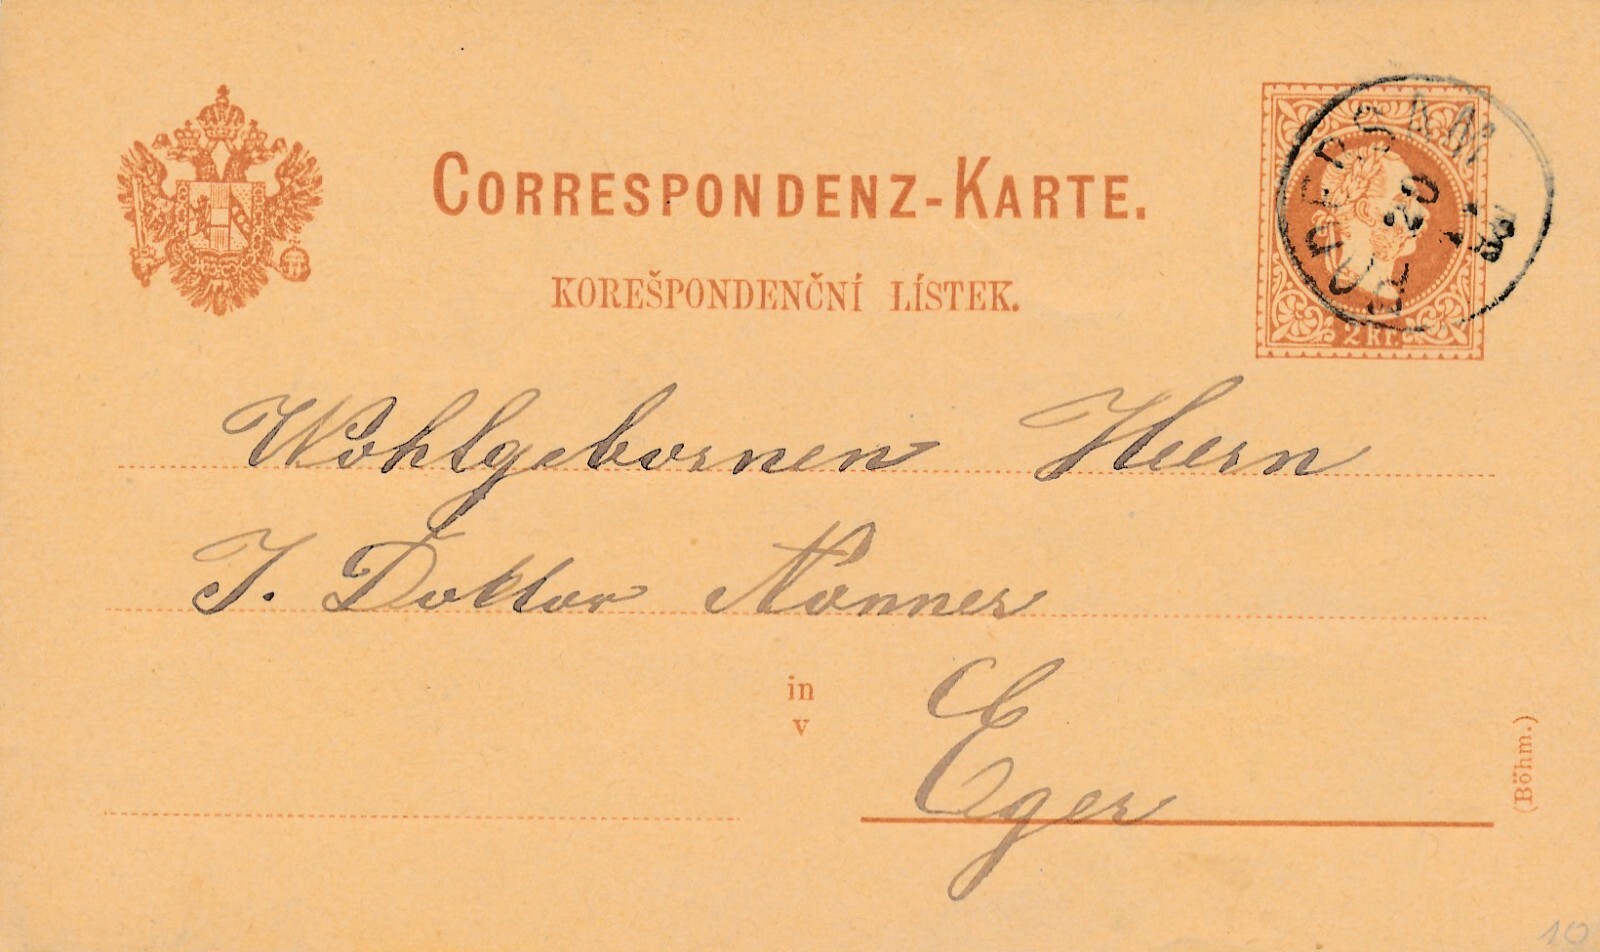 CORRESPONDENZ-KARTE.
KOREŠPONDENČNÍ LÍSTEK.
2 Kr.
20
Wohlgebornen Herrn
J. Doktor Nonner
in
v
Eger
(Böhm.)
10